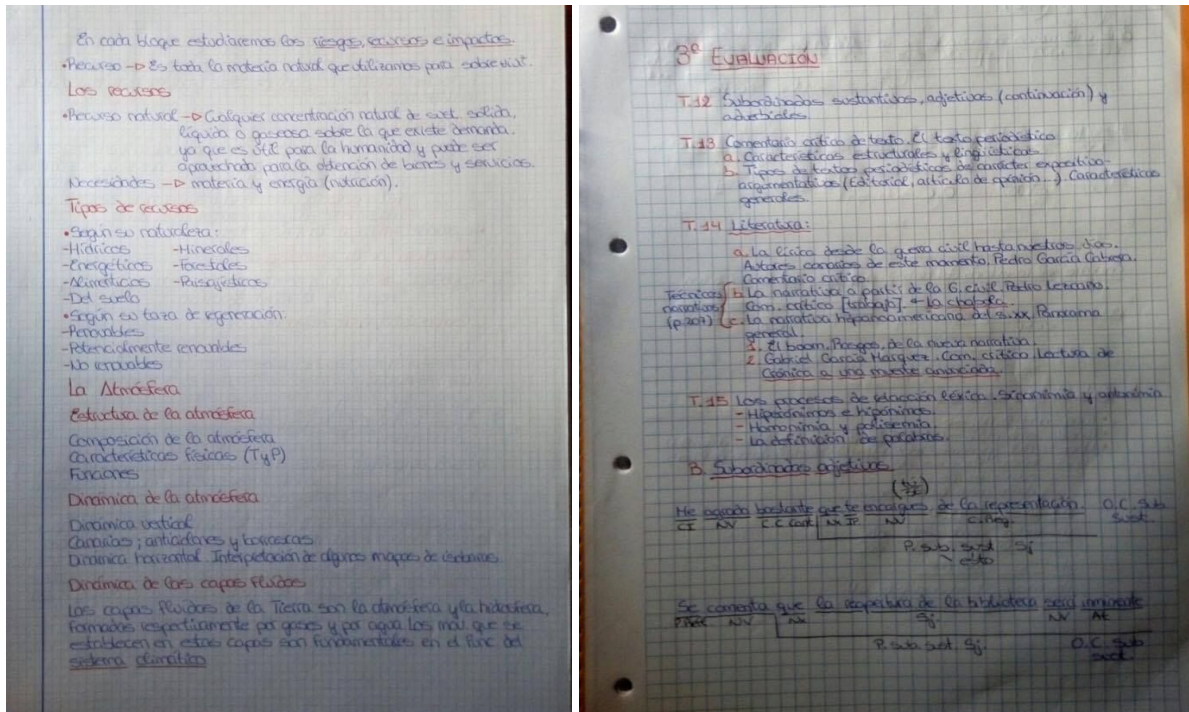 En cada bloque estudiaremos los riesgos, recursos e impactos.
•Recurso -> Es toda la materia natural que utilizamos para sobrevivir.
Los recursos
•Recurso natural -> Cualquier concentración natural de sust. sólida,
líquida o gaseosa sobre la que existe demanda.
ya que es útil para la humanidad y puede ser
aprovechado para la obtención de bienes y servicios.
Necesidades -> materia y energía (nutrición).
Tipos de recursos
•Según su naturaleza:
-Hídricos -Minerales
-Energéticos -Forestales
-Alimenticios -Paisajísticos
-Del suelo
•Según su taza de regeneración:
-Renovables
-Potencialmente renovables
-No renovables
La Atmósfera
Estructura de la atmósfera
Composición de la atmósfera
Características físicas (T y P)
Funciones
Dinámica de la atmósfera
Dinámica vertical
Canarias; anticiclones y borrascas
Dinámica horizontal. Interpretación de algunos mapas de isobaras.
Dinámica de las capas fluidas
Las capas fluidas de la Tierra son la atmósfera y la hidrosfera,
formadas respectivamente por gases y por agua. Los mov. que se
establecen en estas capas son fundamentales en el func. del
sistema climático
3ª EVALUACIÓN
T.12 Subordinadas sustantivas, adjetivas (continuación) y
adverbiales.
T.13 Comentario crítico de texto. El texto periodístico
a. Características estructurales y lingüísticas
b. Tipos de textos periodísticos de carácter expositivo-
argumentativos (Editorial, artículo de opinión...). Características
generales.
T.14 Literatura:
a. La lírica desde la guerra civil hasta nuestros días.
Autores canarios de este momento, Pedro García Cabrera.
Comentario crítico.
Técnicas narrativas (p.207)
b. La narrativa a partir de la G. civil. Pedro Lezcano.
Com. crítico [trabajo]. + La chabola.
c. La narrativa hispanoamericana del s.XX. Panorama
general.
1. El boom. Rasgos de la nueva narrativa.
2. Gabriel García Márquez. Com. crítico. Lectura de
Crónica a una muerte anunciada.
T.15 Los procesos de relación léxica. Sinonimia y antonimia
- Hiperónimos e hipónimos.
- Homonimia y polisemia.
- La definición de palabras.
B. Subordinadas adjetivas
Me agrada bastante que te encargues de la representación. O.C. Sub
CI NV C.C. Cant Nx NV C. Reg. Sust.
P. Sub. Sust Sj
esto
Se comenta que la reapertura de la biblioteca será inminente
NV Nx Sj. NV At
P. Sub. sust. Sj. O.C. Sub
sust.